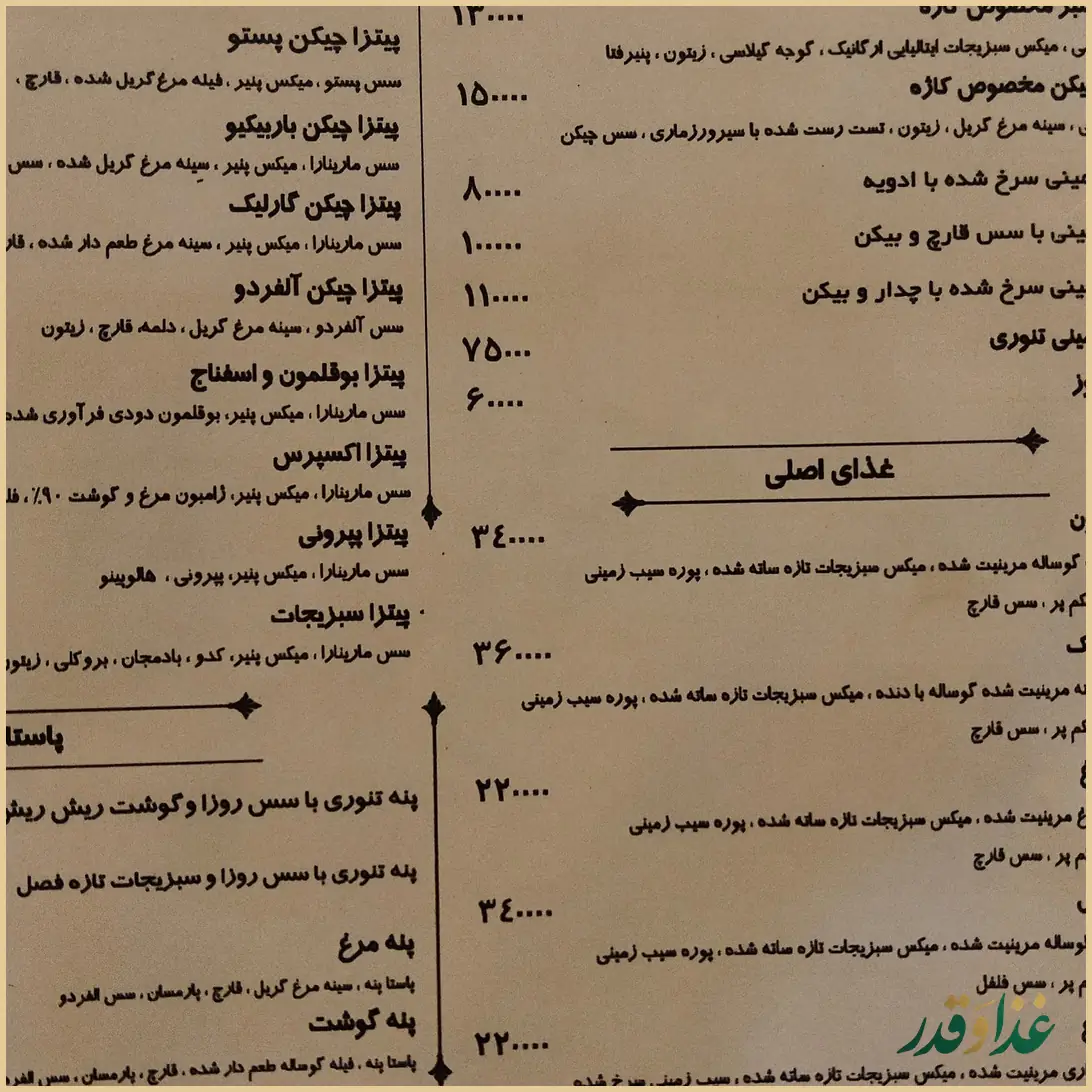 ۱۳۰۰۰۰
ی ، میکس سبزیجات ایتالیایی ارگانیک ، گوجه گیلاسی ، زیتون ، پنیرفتا
مخصوص کاژه ۱۵۰۰۰۰
، سینه مرغ گریل ، زیتون ، تست رست شده با سیرورزماری ، سس چیکن
سرخ شده با ادویه ۸۰۰۰۰
با سس قارچ و بیکن ۱۰۰۰۰۰
سرخ شده با چدار و بیکن ۱۱۰۰۰۰
تنوری ۷۵۰۰۰
۶۰۰۰۰
غذای اصلی
۳٤۰۰۰۰
گوساله مرینیت شده ، میکس سبزیجات تازه ساته شده ، پوره سیب زمینی
کم پر ، سس قارچ
۳۶۰۰۰۰
مرینیت شده گوساله با دنده ، میکس سبزیجات تازه ساته شده ، پوره سیب زمینی
کم پر ، سس قارچ
۲۲۰۰۰۰
مرینیت شده ، میکس سبزیجات تازه ساته شده ، پوره سیب زمینی
پر ، سس قارچ
۳٤۰۰۰۰
مرینیت شده ، میکس سبزیجات تازه ساته شده ، پوره سیب زمینی
پر ، سس فلفل
۲۲۰۰۰۰
مرینیت شده ، میکس سبزیجات تازه ساته شده ، سیب زمینی سرخ شده
پیتزا چیکن پستو
سس پستو ، میکس پنیر ، فیله مرغ گریل شده ، قارچ ،
پیتزا چیکن باربیکیو
سس مارینارا ، میکس پنیر ، سینه مرغ گریل شده ، سس
پیتزا چیکن گارلیک
سس مارینارا ، میکس پنیر ، سینه مرغ طعم دار شده ،
پیتزا چیکن آلفردو
سس آلفردو ، سینه مرغ گریل ، دلمه، قارچ ، زیتون
پیتزا بوقلمون و اسفناج
سس مارینارا ، میکس پنیر، بوقلمون دودی فرآوری شده
پیتزا اکسپرس
سس مارینارا ، میکس پنیر، ژامبون مرغ و گوشت ۹۰٪ ،
پیتزا پپرونی
سس مارینارا ، میکس پنیر، پپرونی ، هالوپینو
پیتزا سبزیجات
سس مارینارا ، میکس پنیر، کدو ، بادمجان ، بروکلی ، زیتون
پاستا
پنه تنوری با سس روزا و گوشت ریش ریش
پنه تنوری با سس روزا و سبزیجات تازه فصل
پنه مرغ
پاستا پنه ، سینه مرغ گریل ، قارچ ، پارمسان ، سس الفردو
پنه گوشت
پاستا پنه ، فیله گوساله طعم دار شده ، قارچ ، پارمسان ، سس
غذا و قدر